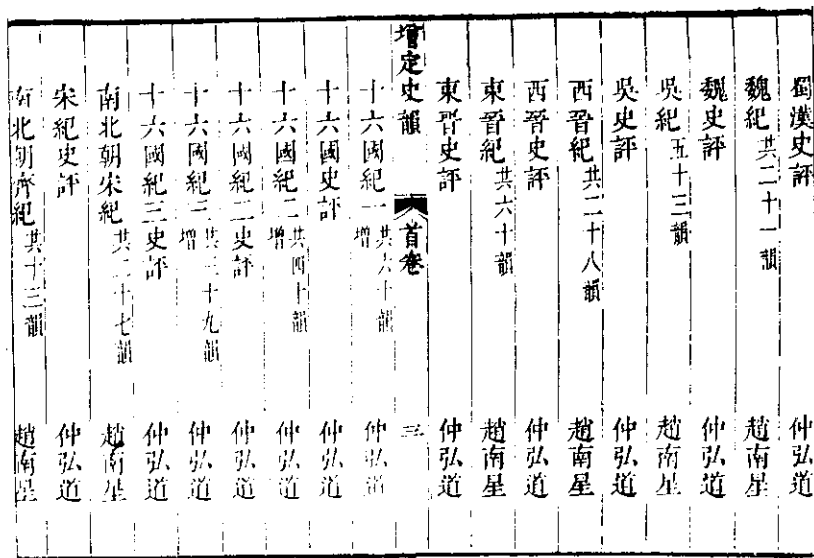 蜀漢史評 仲弘道
魏紀 共二十一韻 趙南星
魏史評 仲弘道
吳紀 五十三韻 趙南星
吳史評 仲弘道
西晉紀 共二十八韻 趙南星
西晉史評 仲弘道
東晉紀 共六十韻 趙南星
東晉史評 仲弘道
增定史韻 首卷 三
十六國紀一 共六十韻 增 仲弘道
十六國史評 仲弘道
十六國紀二 共四十韻 增 仲弘道
十六國紀二史評 仲弘道
十六國紀三 共三十九韻 增 仲弘道
十六國紀三史評 仲弘道
南北朝宋紀 共二十七韻 趙南星
宋紀史評 仲弘道
南北朝齊紀 共十三韻 趙南星